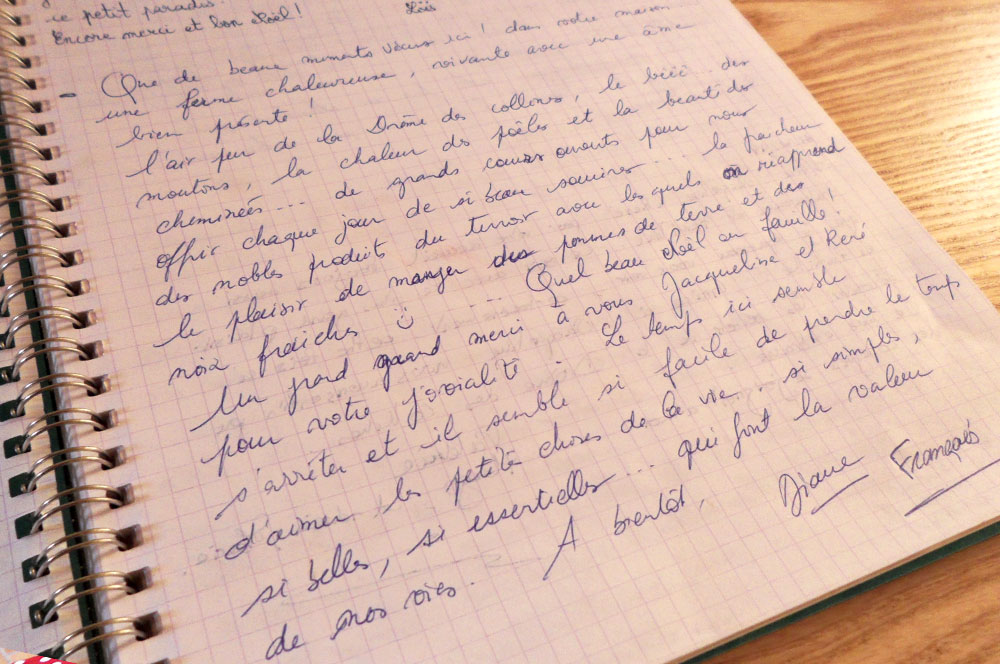 ce petit paradis.
Encore merci et bon Noël ! Loïs
- Que de beaux moments vécus ici ! dans votre maison
une ferme chaleureuse, vivante avec une âme
bien présente !
l'air pur de la Drôme des collines, le bêêê... des
moutons, la chaleur des poêles et la beauté des
cheminées... de grands cœurs ouverts pour nous
offrir chaque jour de si beaux sourires... la fraicheur
des nobles produits du terroir avec lesquels on réapprend
le plaisir de manger des pommes de terre et des
noix fraiches ☺ ... Quel beau Noël en famille !
Un grand grand merci à vous Jacqueline et René
pour votre jovialité. Le temps ici semble
s'arrêter et il semble si facile de prendre le temps
d'aimer les petites choses de la vie, si simples,
si belles, si essentielles... qui font la valeur
de nos vies. A bientôt, Diane François